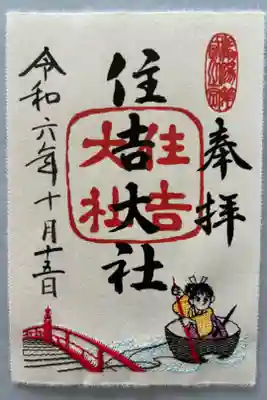 奉拝
住吉大社
住吉大社
令和六年十月十五日